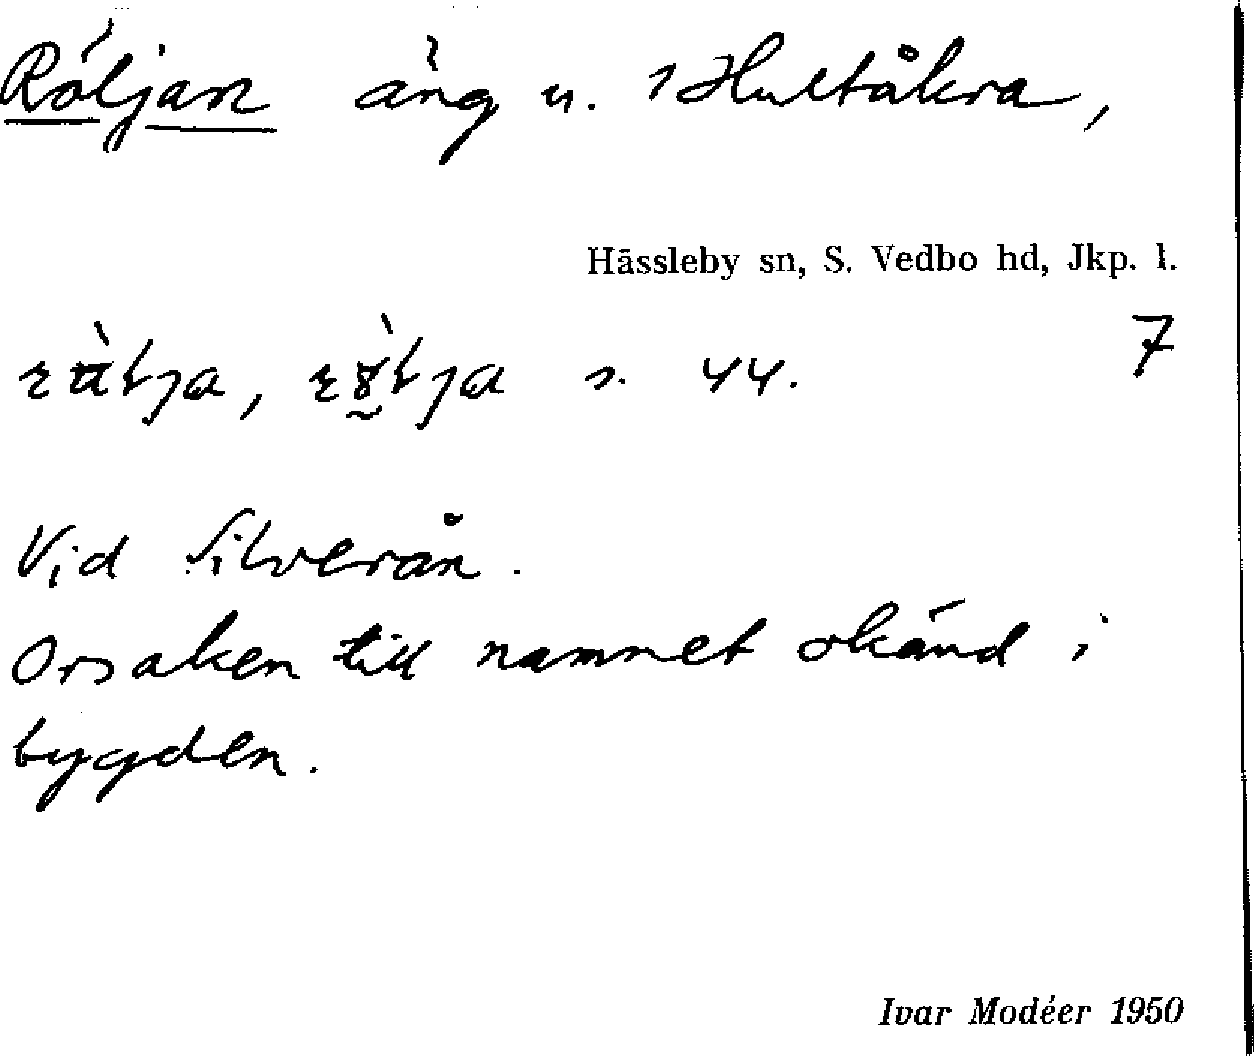 Röljan äng u. 1 Hultåkra,
Hässleby sn, S. Vedbo hd, Jkp. l.
7
s. 44.
Vid Silverån.
Orsaken till namnet okänd i
bygden.
Ivar Modéer 1950